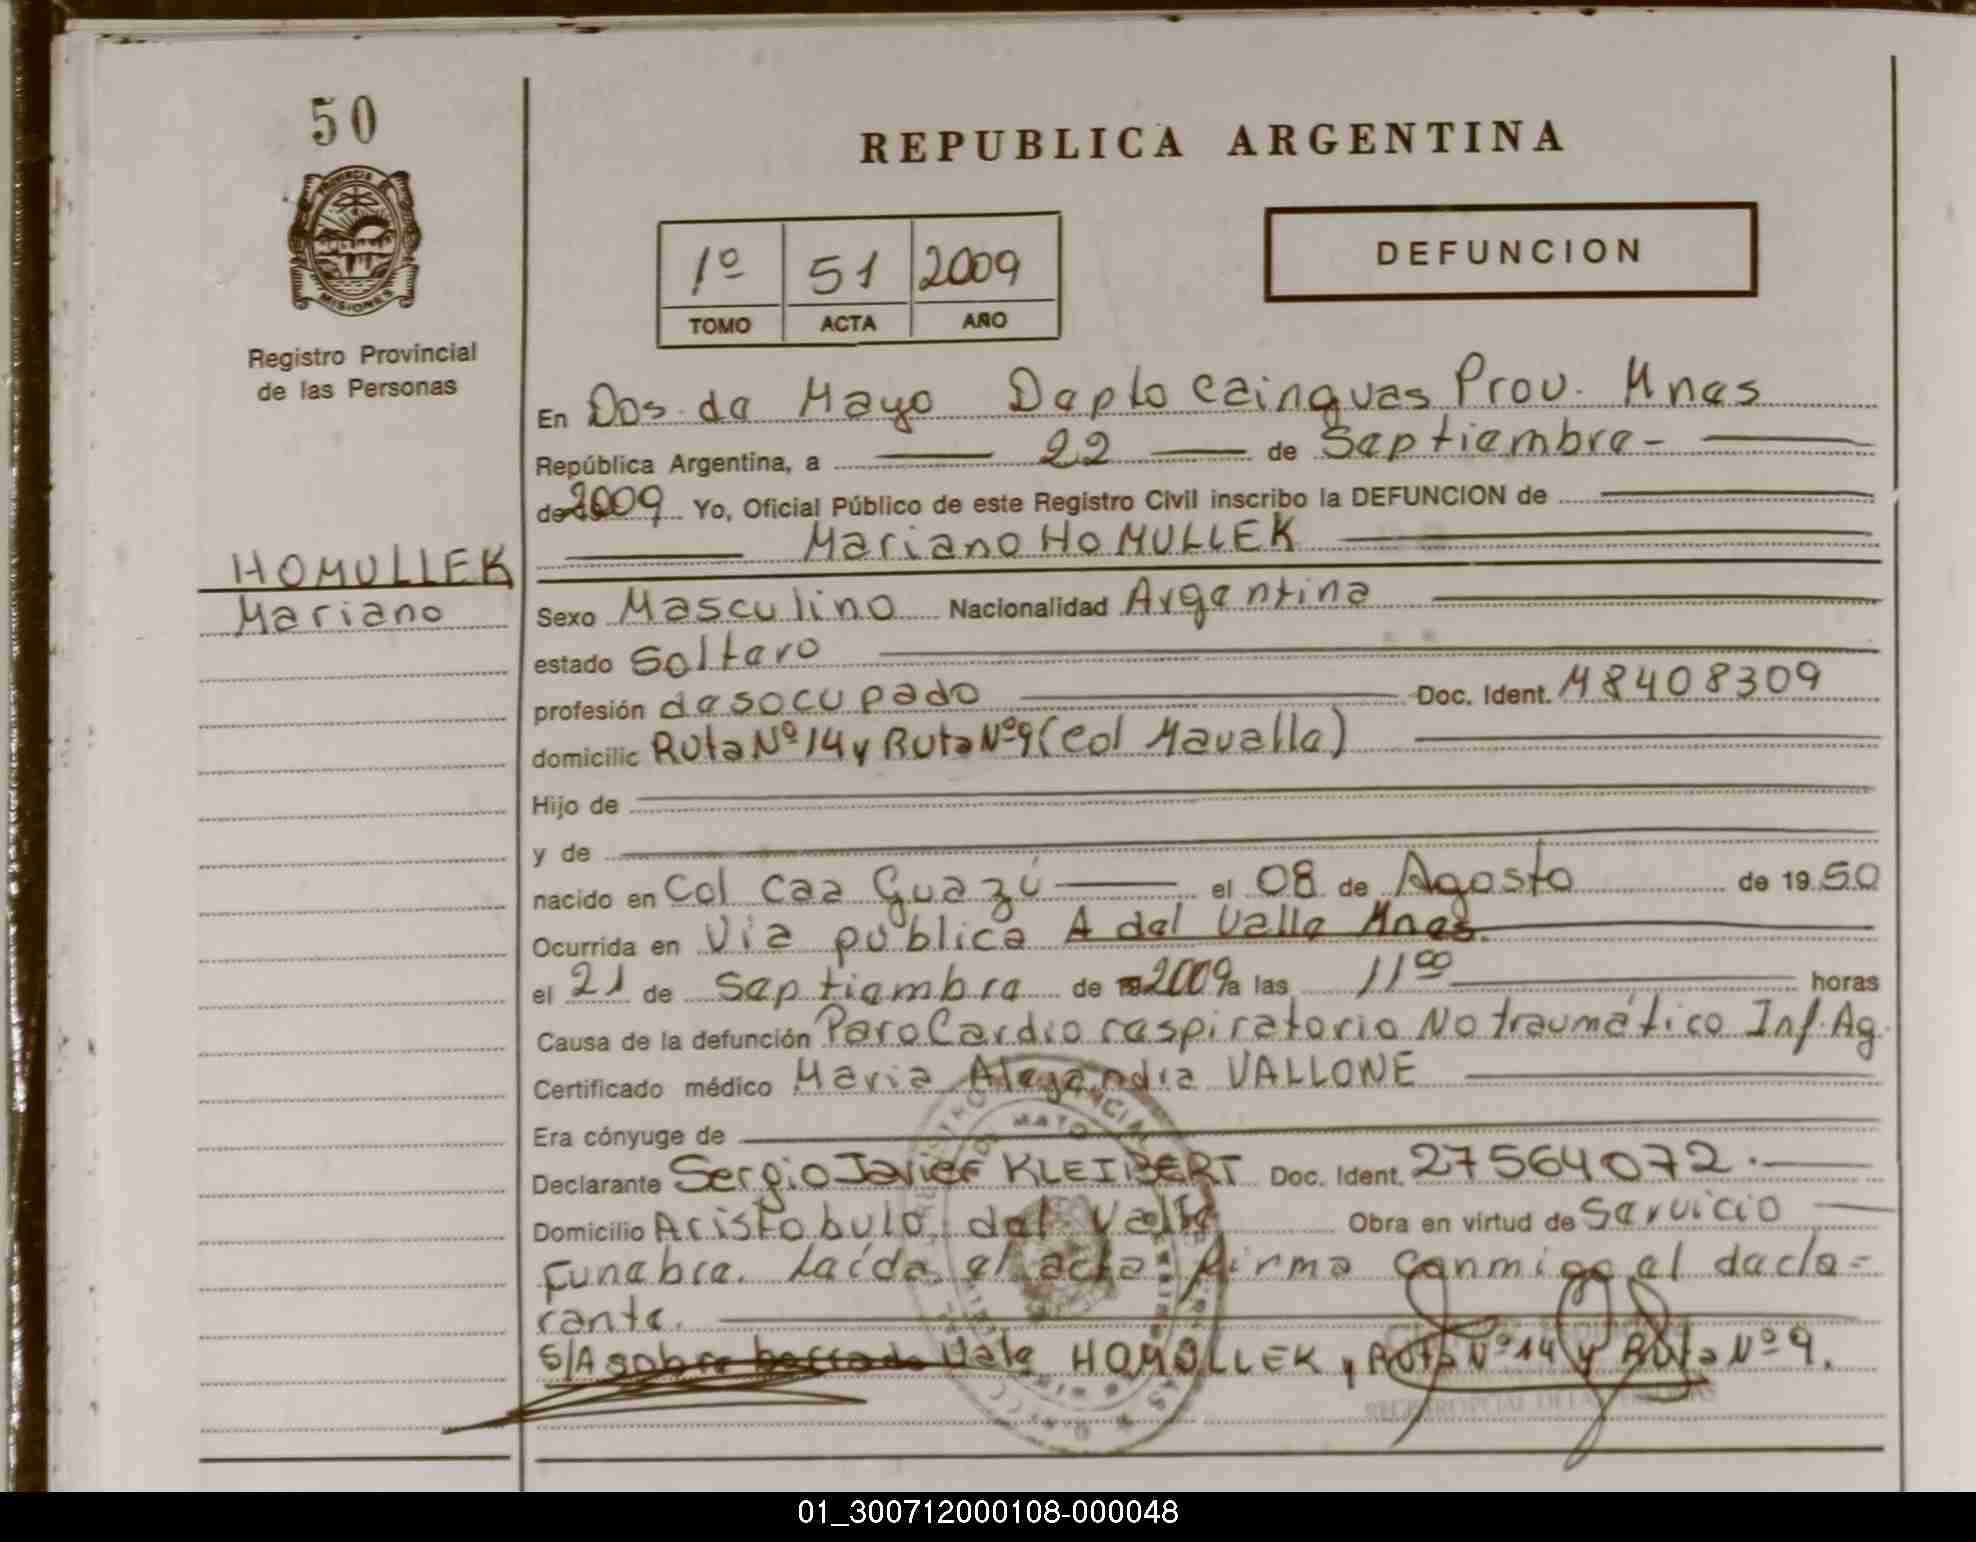 50
REPUBLICA ARGENTINA
PROVINCIA DE
MISIONES
Registro Provincial
de las Personas
1º 51 2009
TOMO ACTA AÑO
DEFUNCION
En Dos de Mayo Depto Cainguas Prov. Mnes
República Argentina, a 22 de Septiembre-
de 2009 Yo, Oficial Público de este Registro Civil inscribo la DEFUNCION de
Mariano HOMULLEK
HOMULLEK
Mariano
Sexo Masculino Nacionalidad Argentina
estado Soltero
profesión desocupado Doc. Ident. M8408309
domicilio Ruta Nº 14 y Ruta Nº 9 (Col Mavalle)
Hijo de
y de
nacido en Col Caa Guazú el 08 de Agosto de 1950
Ocurrida en Via publica A del Valle Mnes.
el 21 de Septiembre de 2009 a las 11 00 horas
Causa de la defunción Paro Cardio respiratorio No traumático Inf. Ag.
Certificado médico Maria Alejandra VALLONE
Era cónyuge de
Declarante Sergio Javier KLEIBERT Doc. Ident. 27564072.
Domicilio Aristobulo del Valle Obra en virtud de Servicio
Funebre. Leída el acta firma conmigo el decla=
rante.
S/A sobre borrado Vale HOMULLEK, Ruta Nº 14 y Ruta Nº 9.
01_300712000108-000048